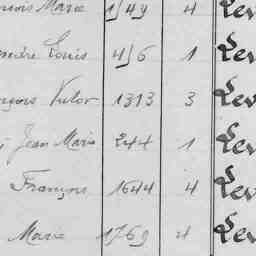 Marie 1549 4 Lev
Louis 456 1 Lev
Victor 1313 3 Lev
Jean Marie 244 1 Lev
François 1644 4 Lev
Marie 1769 4 Lev